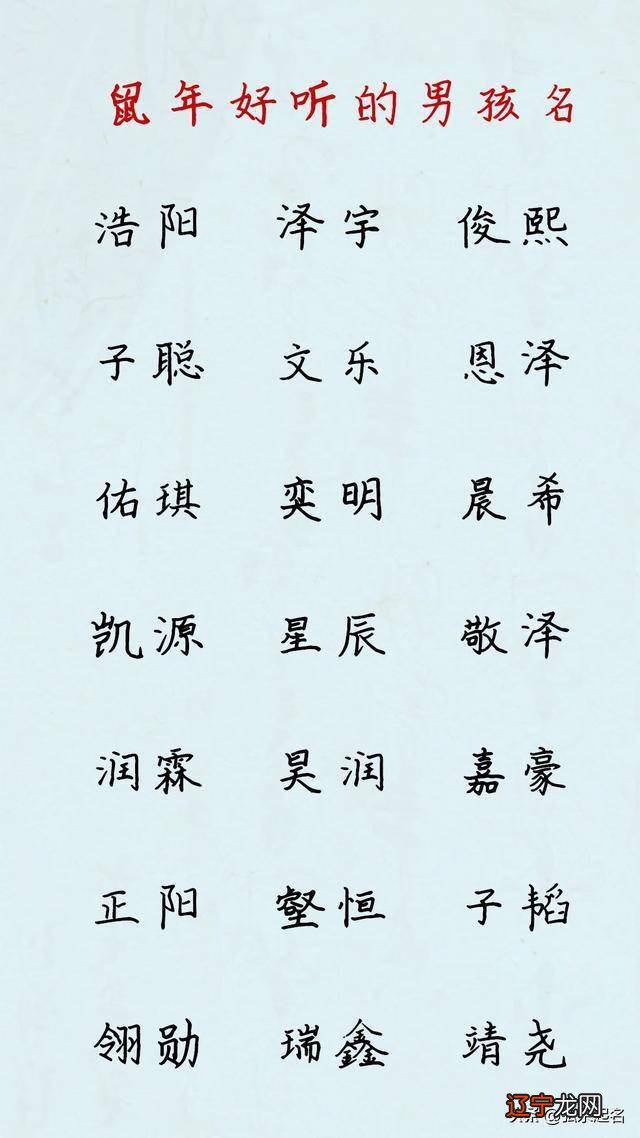 鼠年好听的男孩名
浩阳 泽宇 俊熙
子聪 文乐 恩泽
佑琪 奕明 晨希
凯源 星辰 敬泽
润霖 昊润 嘉豪
正阳 壑恒 子韬
翎勋 瑞鑫 靖尧
辽宁龙网